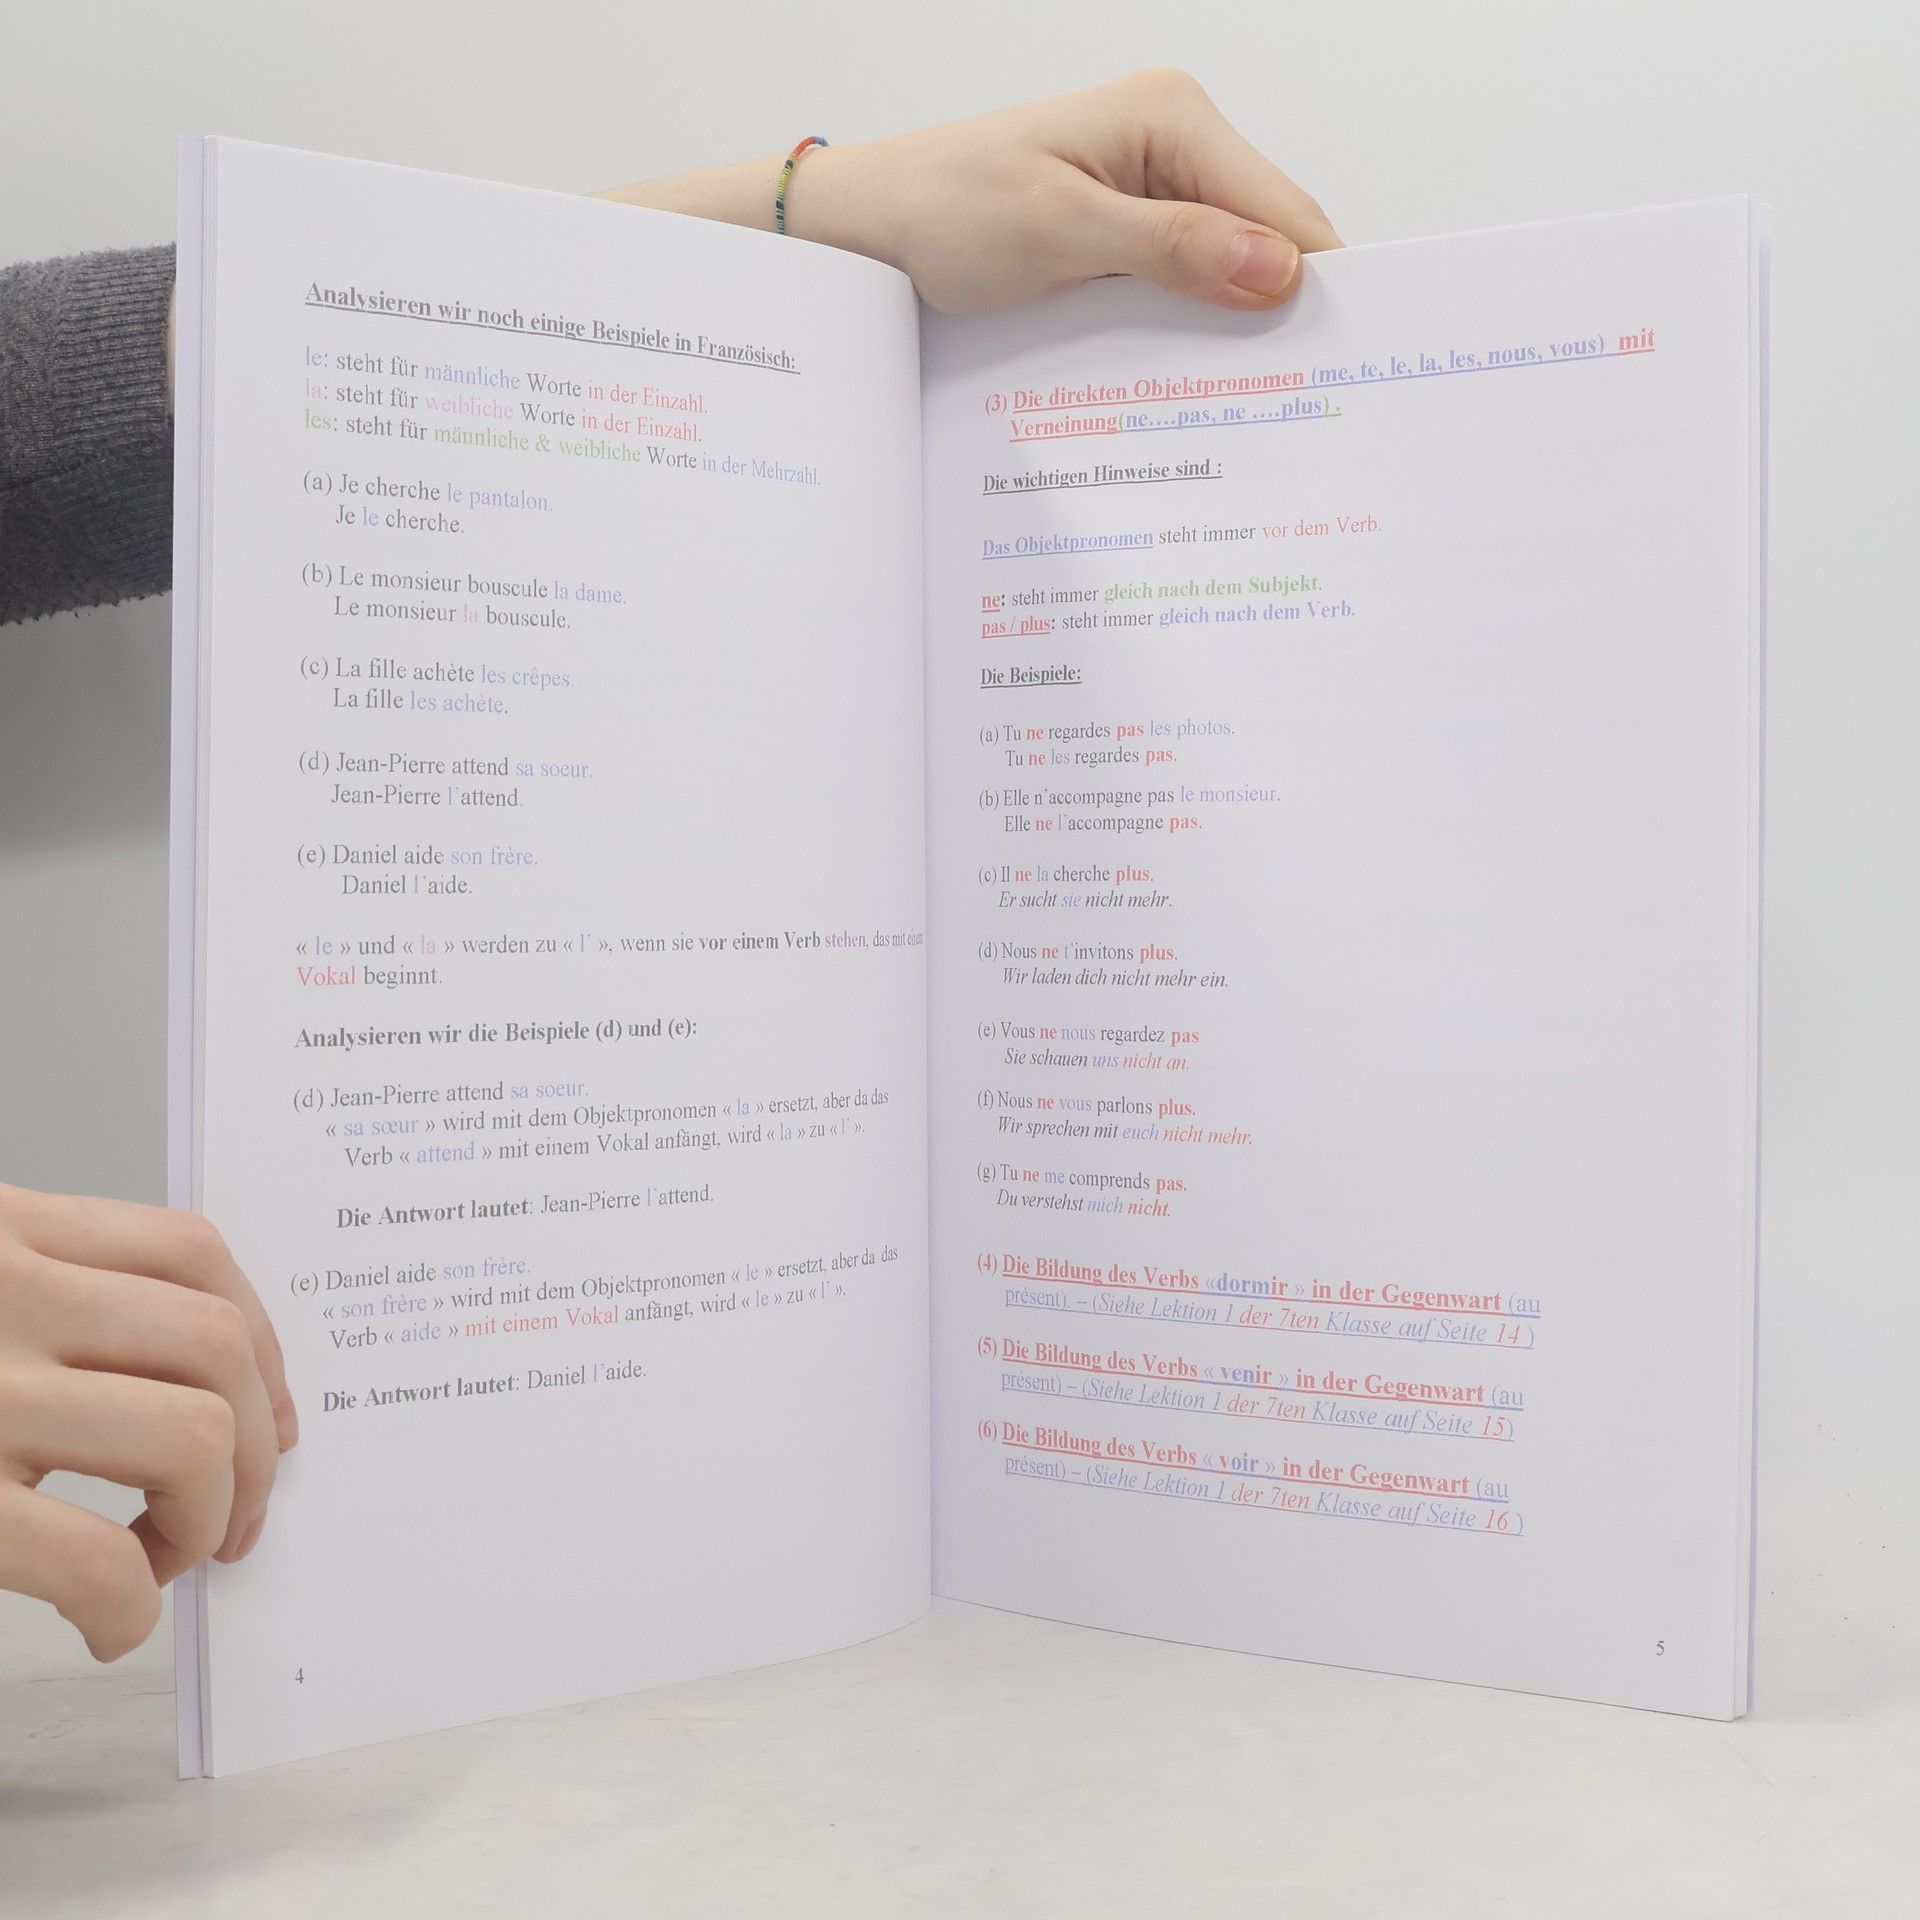 Analysieren wir noch einige Beispiele in Französisch:
le: steht für männliche Worte in der Einzahl.
la: steht für weibliche Worte in der Einzahl.
les: steht für männliche & weibliche Worte in der Mehrzahl.
(a) Je cherche le pantalon.
Je le cherche.
(b) Le monsieur bouscule la dame.
Le monsieur la bouscule.
(c) La fille achète les crêpes.
La fille les achète.
(d) Jean-Pierre attend sa soeur.
Jean-Pierre l'attend.
(e) Daniel aide son frère.
Daniel l'aide.
« le » und « la » werden zu « l' », wenn sie vor einem Verb stehen, das mit einen
Vokal beginnt.
Analysieren wir die Beispiele (d) und (e):
(d) Jean-Pierre attend sa soeur.
« sa sœur » wird mit dem Objektpronomen « la » ersetzt, aber da das
Verb « attend » mit einem Vokal anfängt, wird « la » zu « l' ».
Die Antwort lautet: Jean-Pierre l'attend.
(e) Daniel aide son frère.
« son frère » wird mit dem Objektpronomen « le » ersetzt, aber da das
Verb « aide » mit einem Vokal anfängt, wird « le » zu « l' ».
Die Antwort lautet: Daniel l'aide.
4
(3) Die direkten Objektpronomen (me, te, le, la, les, nous, vous) mit
Verneinung(ne....pas, ne ....plus) .
Die wichtigen Hinweise sind :
Das Objektpronomen steht immer vor dem Verb.
ne: steht immer gleich nach dem Subjekt.
pas / plus: steht immer gleich nach dem Verb.
Die Beispiele:
(a) Tu ne regardes pas les photos.
Tu ne les regardes pas.
(b) Elle n'accompagne pas le monsieur.
Elle ne l'accompagne pas.
(c) Il ne la cherche plus.
Er sucht sie nicht mehr.
(d) Nous ne t'invitons plus.
Wir laden dich nicht mehr ein.
(e) Vous ne nous regardez pas
Sie schauen uns nicht an.
(f) Nous ne vous parlons plus.
Wir sprechen mit euch nicht mehr.
(g) Tu ne me comprends pas.
Du verstehst mich nicht.
(4) Die Bildung des Verbs «dormir » in der Gegenwart (au
présent). – (Siehe Lektion 1 der 7ten Klasse auf Seite 14 )
(5) Die Bildung des Verbs « venir » in der Gegenwart (au
présent) – (Siehe Lektion 1 der 7ten Klasse auf Seite 15)
(6) Die Bildung des Verbs « voir » in der Gegenwart (au
présent) – (Siehe Lektion 1 der 7ten Klasse auf Seite 16 )
5